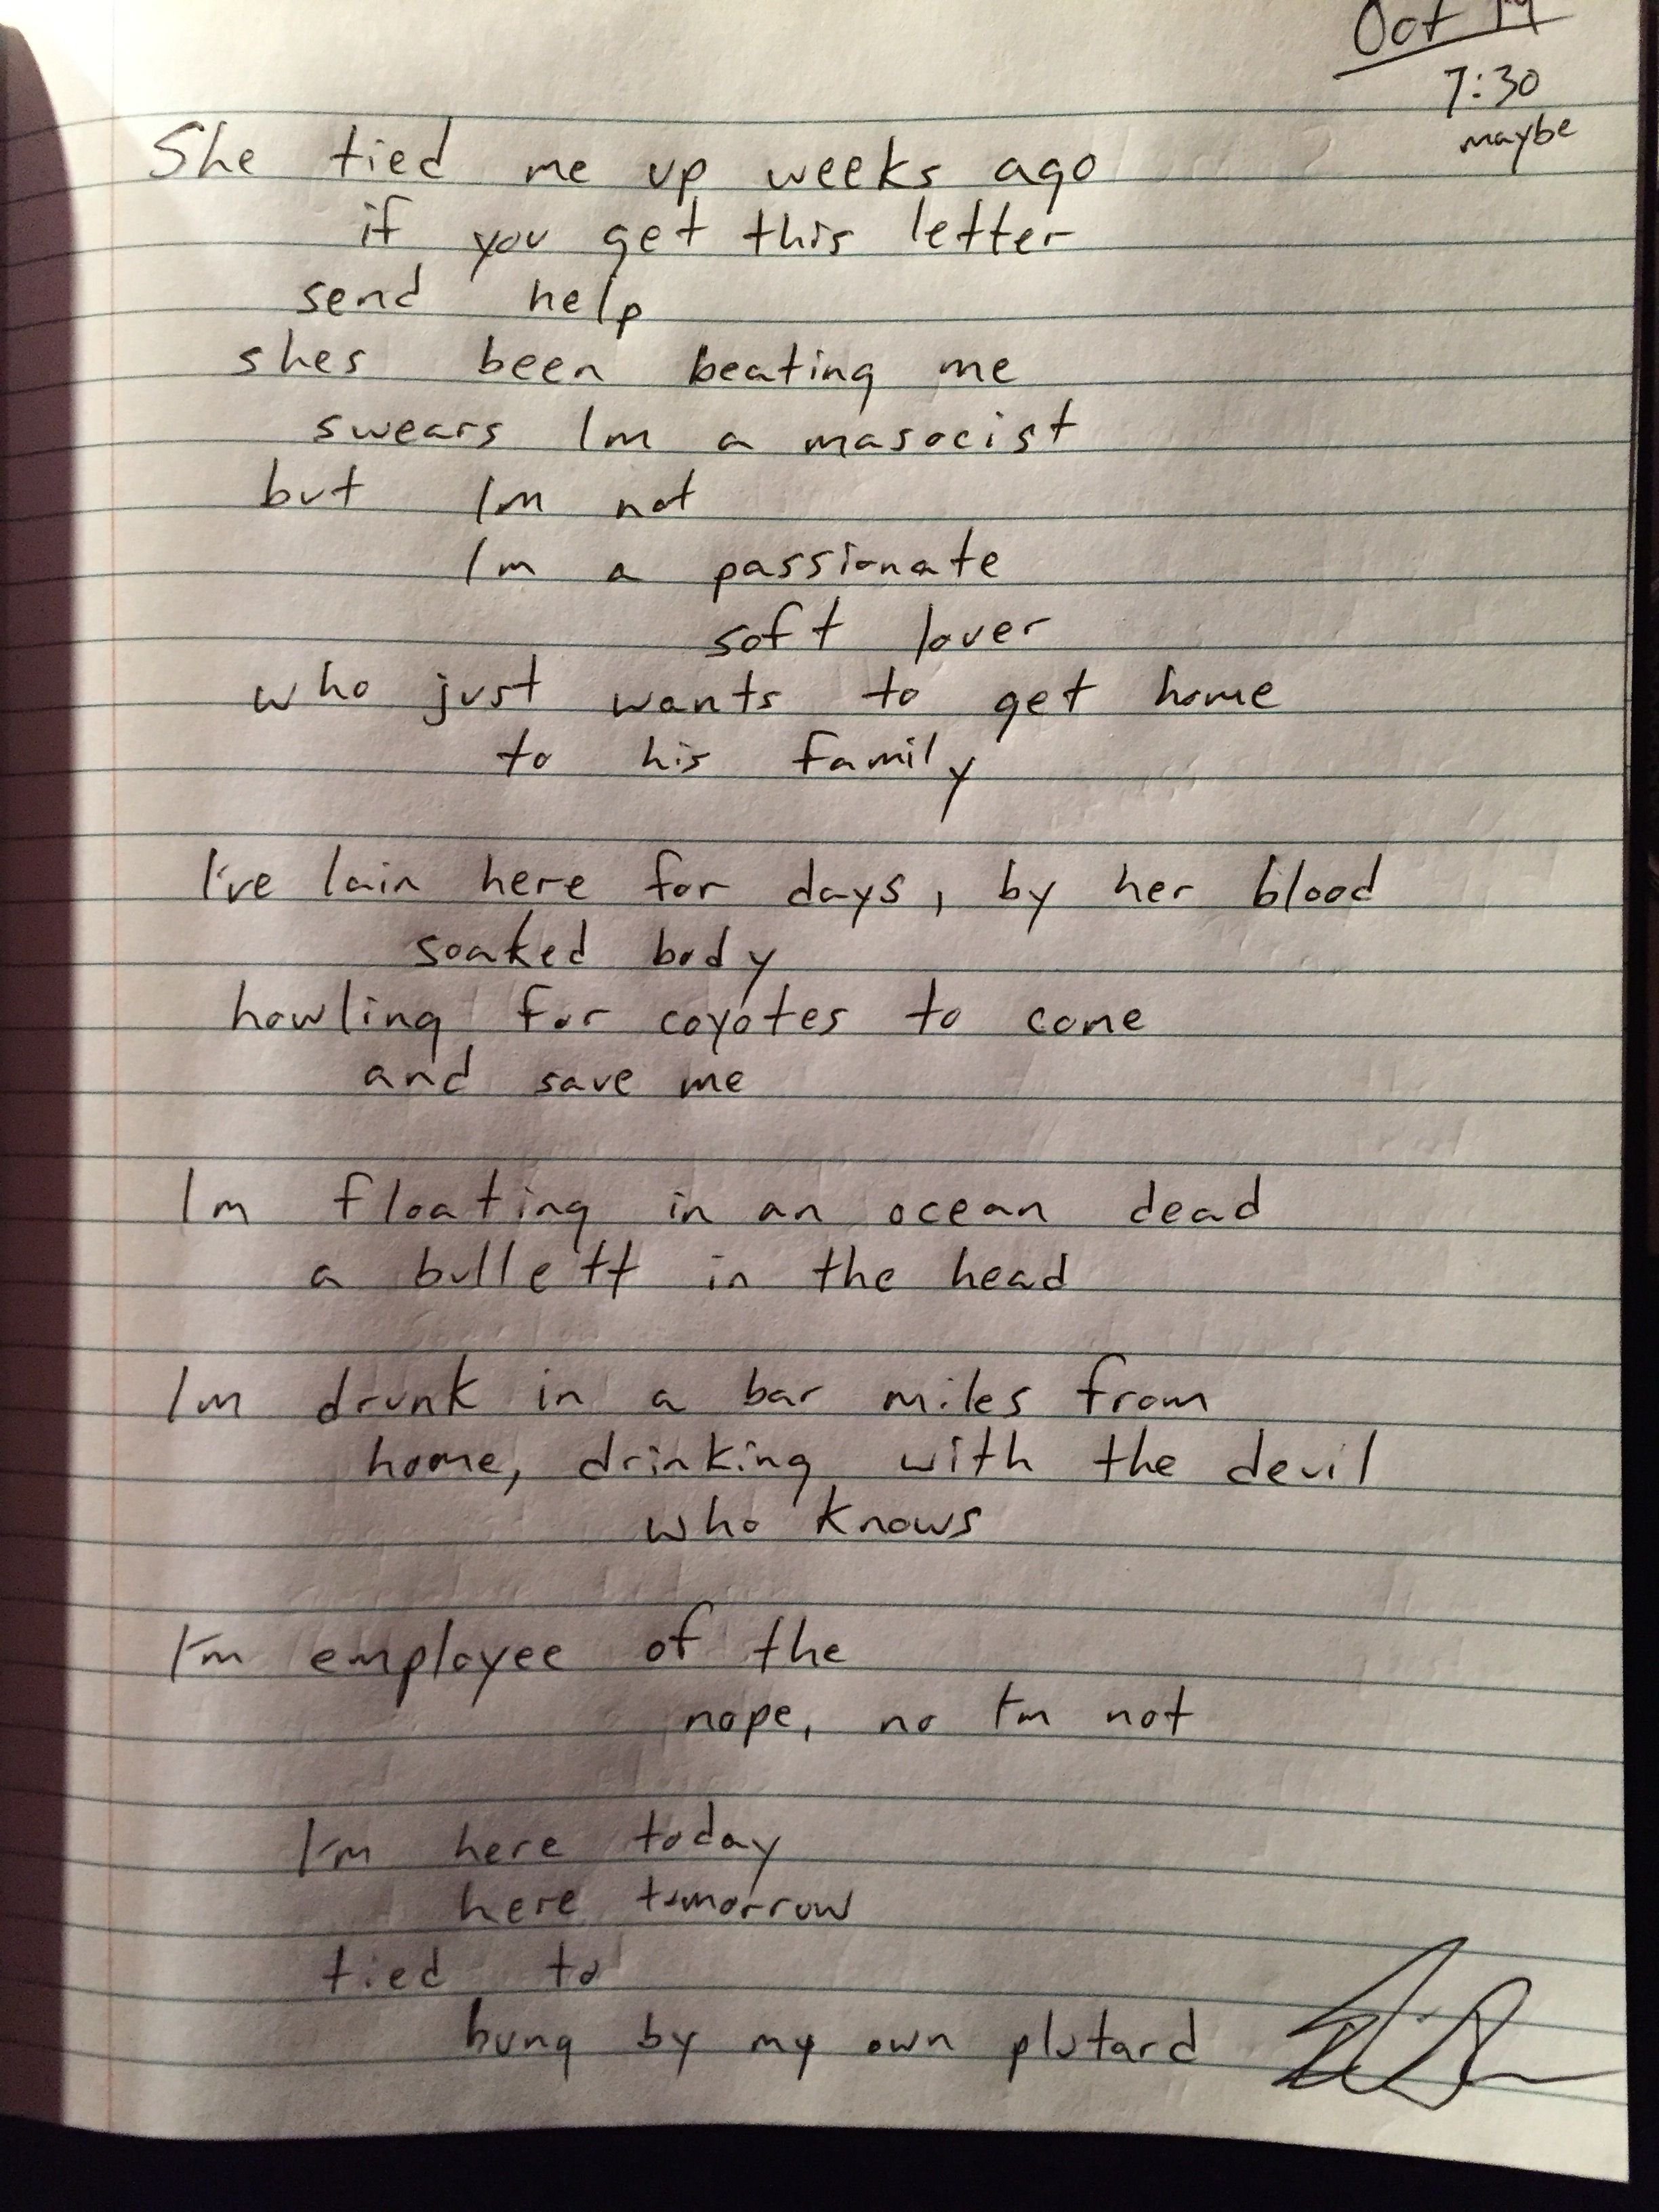 Oct 19
7:30
maybe
She tied me up weeks ago
if you get this letter
send help
shes been beating me
swears Im a masocist
but Im not
Im a passionate
soft lover
who just wants to get home
to his family
I've lain here for days, by her blood
soaked body
howling for coyotes to come
and save me
Im floating in an ocean dead
a bullett in the head
Im drunk in a bar miles from
home, drinking with the devil
who knows
I'm employee of the
nope, no I'm not
I'm here today
here tomorrow
tied to
hung by my own plutard